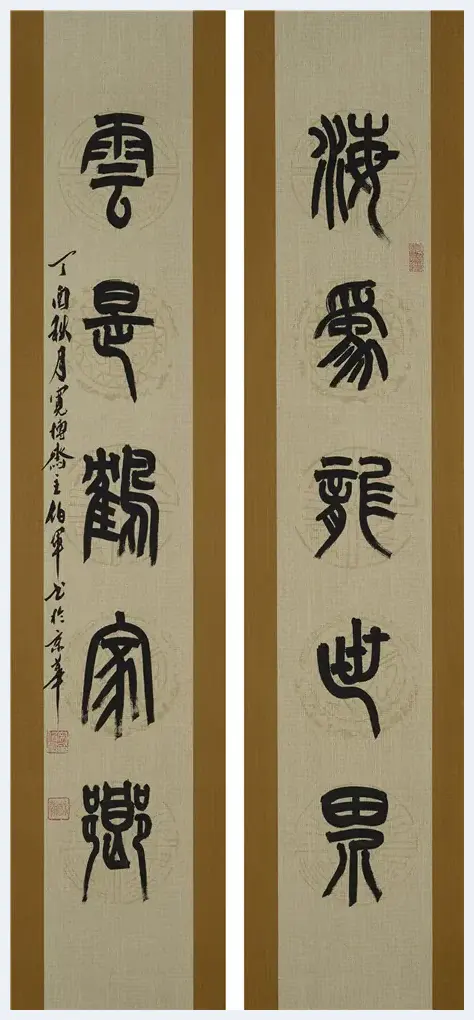 海爲龍世界
雲是鶴家鄉
丁酉秋月寬博齋主伯軍書於京華